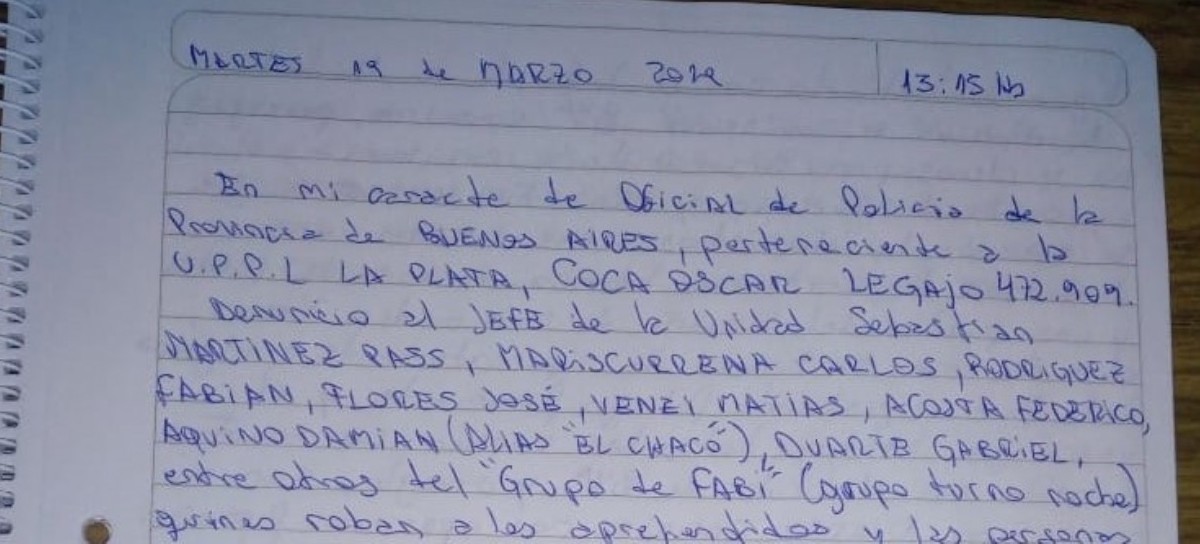 MARTES 19 de MARZO 2019 13:15 hs
En mi caracte de Oficial de Policia de la
Provincia de BUENOS AIRES, perteneciente a la
U.P.P.L LA PLATA, COCA OSCAR LEGAJO 472.909.
Denuncio al JEFE de la Unidad Sebastian
MARTINEZ PASS, MARISCURRENA CARLOS, RODRIGUEZ
FABIAN, FLORES JOSÉ, VENEZI MATIAS, ACOSTA FEDERICO,
AQUINO DAMIAN (ALIAS "EL CHACO"), DUARTE GABRIEL,
entre otros del "Grupo de FABI" (grupo turno noche)
quines roban a los aprehendidos y las personas